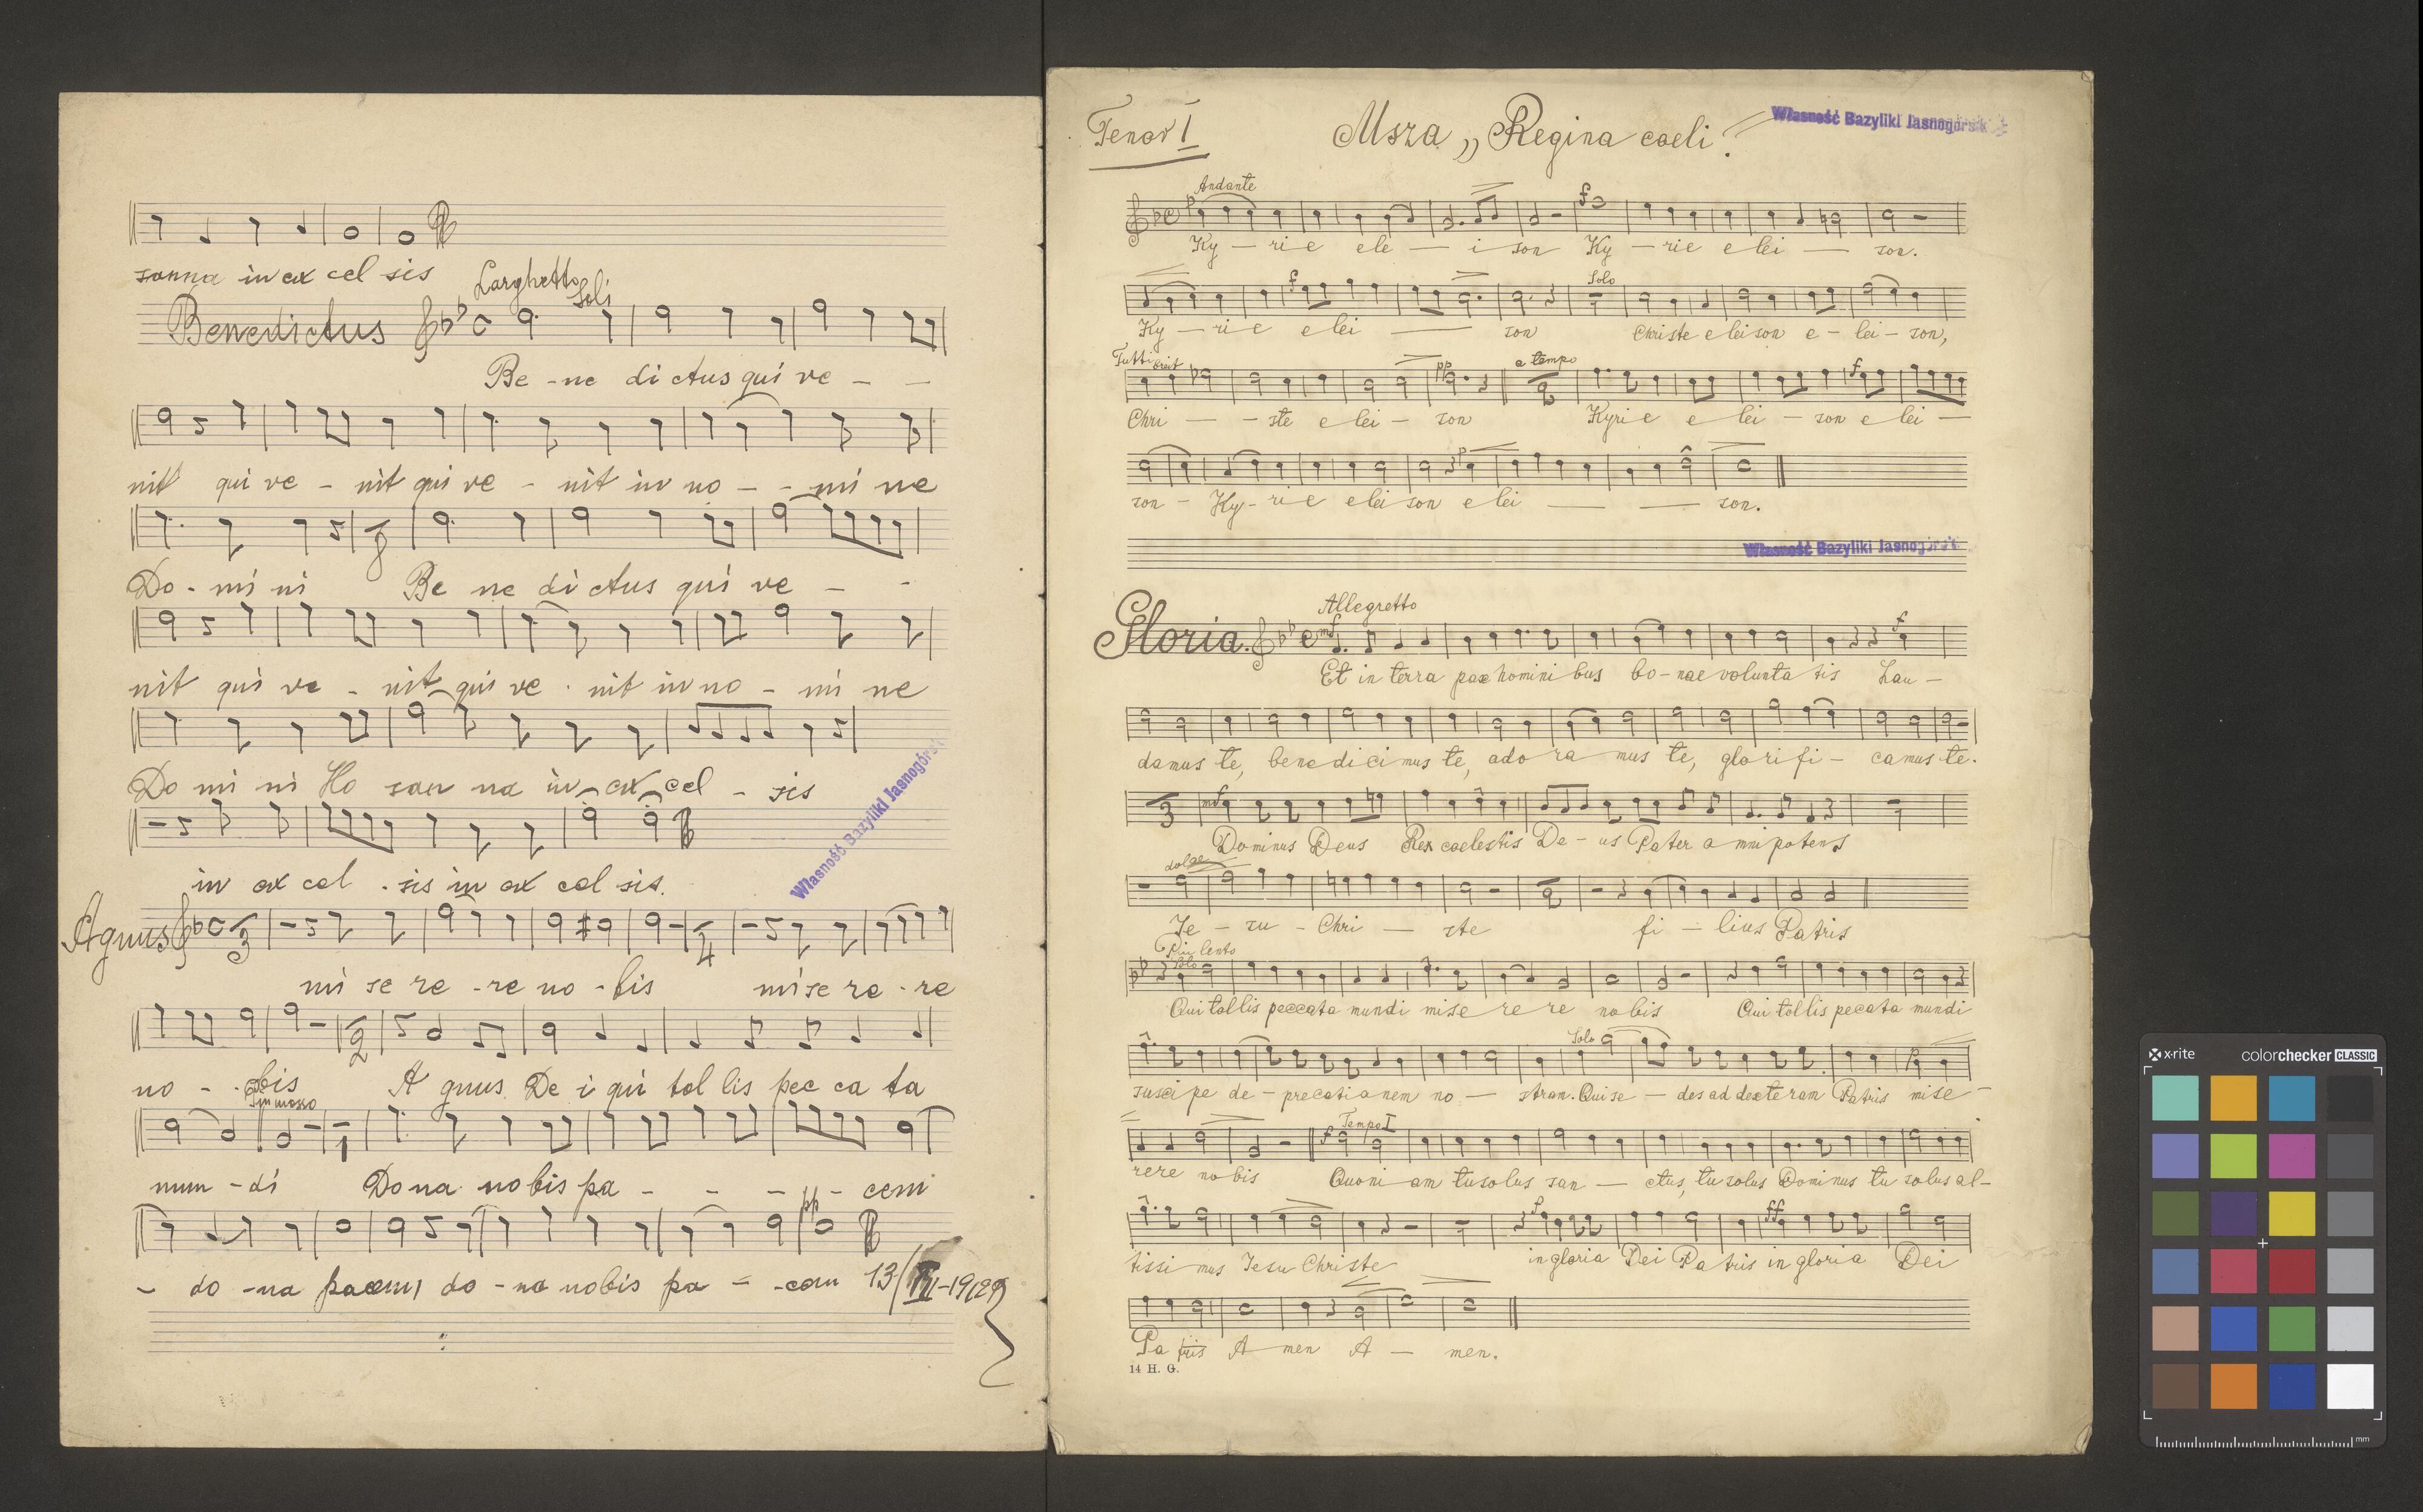 sanna in ex cel sis
Larghetto
Soli
Benedictus
Be - ne di ctus qui ve - -
nit qui ve - nit qui ve - nit in no - - mi ne
Do - mi ni Be ne di ctus qui ve - -
nit qui ve - nit qui ve - nit in no - mi ne
Do mi ni Ho san na in ex cel - sis
in ex cel - sis in ex cel sis.
Własność Bazyliki Jasnogórsk
Agnus 3 4
mi se re - re no - bis mi se re - re
2
no - - bis A gnus De i qui tol lis pec ca ta
Piu mosso
1
mun - di Do na no bis pa - - - - cem
pp
- do - na pacem, do - na nobis pa - - cem 13/VII-1929
Tenor I
Msza „Regina coeli"
Własność Bazyliki Jasnogórsk
Andante
p f
Ky — ri e ele — i son Ky — rie e lei — son.
f Solo
Ky — ri e e lei — son Christe e leison e - lei - son,
Tutti
pp a tempo f
Chri — - ste e lei - son Kyri e e lei - son e lei —
p
son - Ky - ri e elei son e lei — — son.
Własność Bazyliki Jasnogórsk
Allegretto
Gloria. mf f
Et in terra pax homini bus bo - nae volunta tis Lau -
damus te, benedici mus te, ado ra mus te, glori fi - camus te.
3 mf
Dominus Deus Rex coelestis De - us Pater o mni potens
dolce
Je - su - Chri — ste fi — lius Patris
Piu lento
Solo
Qui tollis peccata mundi mise re re nobis Qui tollis pecata mundi
Solo
susci pe de - precationem no — stram. Qui se — des ad dexte ram Patris mise -
f Tempo I
rere no bis Quoni am tu solus san — ctus, tu solus Dominus tu solus al -
f ff
tissi mus Jesu Christe in gloria Dei Pa tris in gloria Dei
Pa tris A men A — men.
14 H. G.
x-rite colorchecker CLASSIC
mm